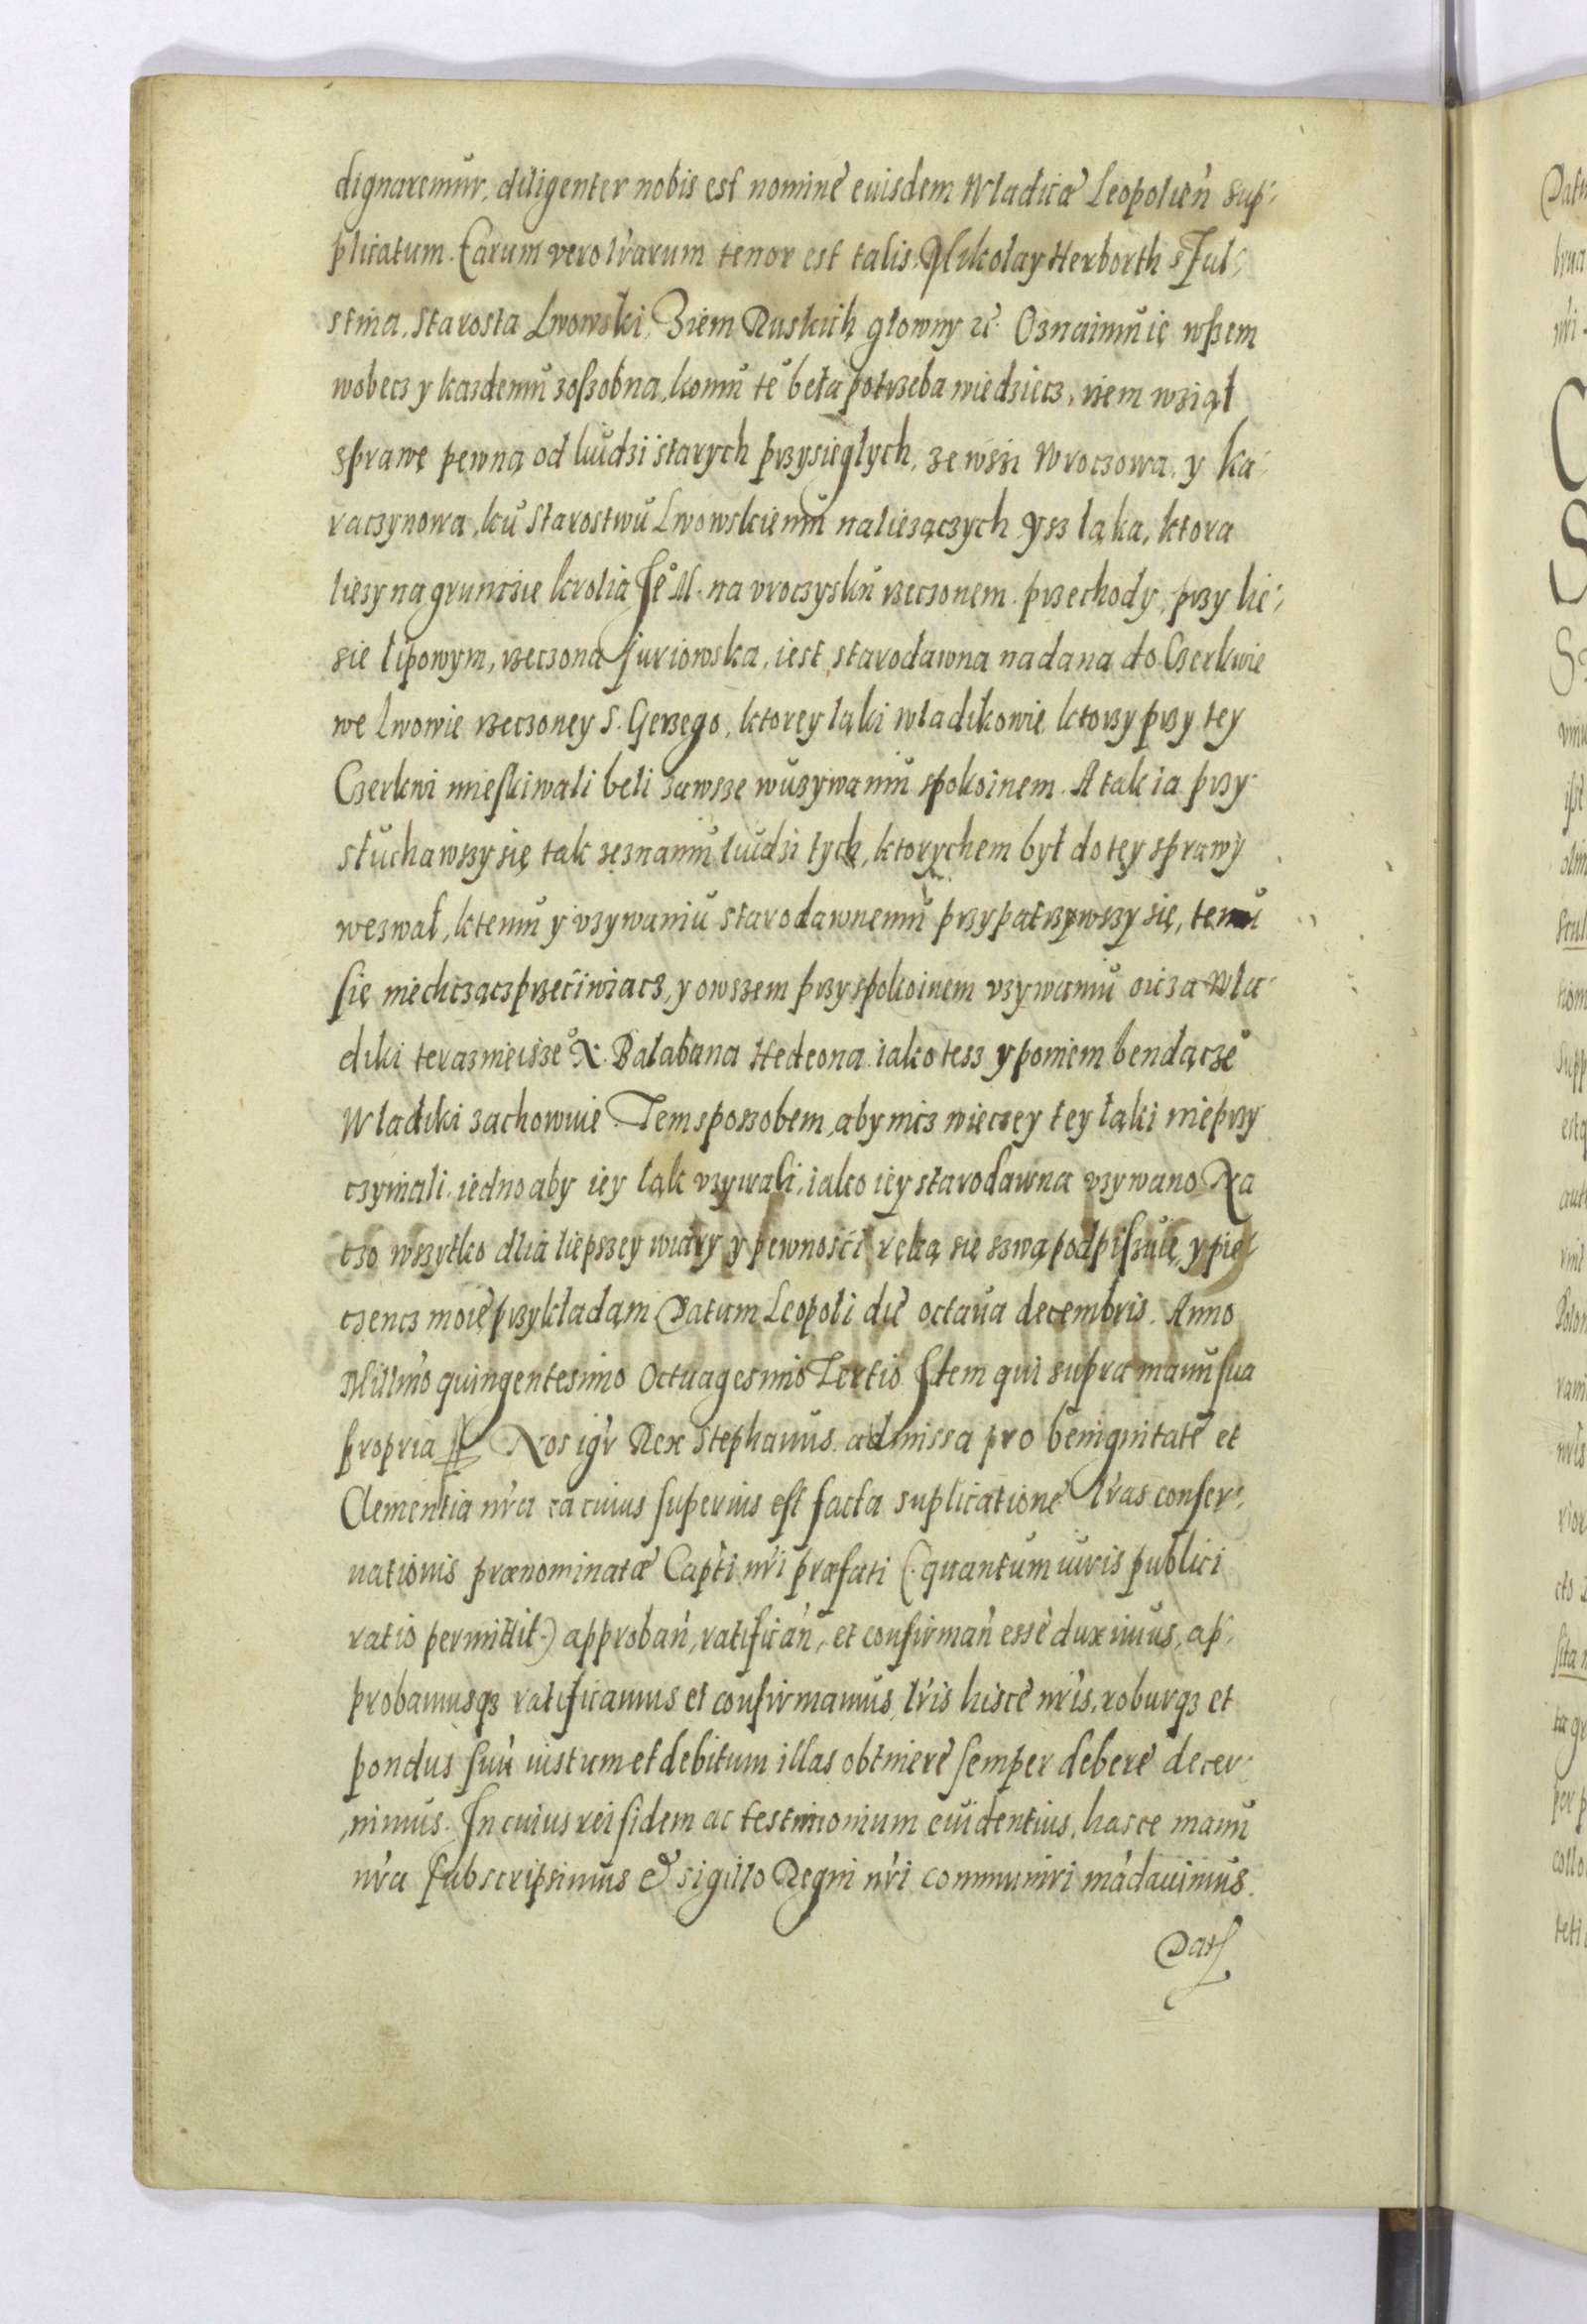 dignaremur, diligenter nobis est nomine euisdem Wladicæ Leopolień sup-
plicatum. Earum vero lr̃arum tenor est talis, Mikolay Herborth s Ful-
stina, Starosta Lwowski, Ziem Ruskich głowny &c. Oznaimuię wszem
wobecz y kazdemu zoszobna, komu te beła potrzeba wiedziecz, rzem wziął
sprawę pewną od liudzi starych przysięgłych, ze wśzi Wroczowa, y Ka-
raczynowa, ku Starostwu Lwowskiemu naliezączych Ysz łąka, ktora
liezy na grunczie krolia Je° M. na vroczysku rzeczonem przechody, przy lie-
sie lipowym, rzeczona Juriowska, iest starodawna nadana do Czerkwie
we Lwowie rzeczoney S. Gerzego, ktorey łąki władikowie, ktorzy przy tey
Czerkwi mieszkiwali beli zawsze wuzywaniu spokoinem. A tak ia przy-
słuchawszy się tak zeznaniu liudzi tych, ktorychem był do tey sprawy
wezwał, ktemu y vzywaniu starodawnemu przypatrzywszy się, temu
się niechcącz przeciwiacz, y owszem przy spokoinem vzywaniu oicza Wła-
diki terazmeisze° X. Bałabana Hedeona iako tesz y poniem bendącze°
Władiki zachowuie Tem sposzobem, aby nicz wieczey tey łąki nieprzy
czyniali, iedno aby iey tak vzywali, iako iey starodawna vzywano Na
tzo wszytko dlia liepszey wiary y pewności, ręką się szwą podpiszuię, y pie-
czencz moię przykładam Datum Leopoli die octaua decembris. Anno
Millmo quingentesimo Octuagesimo Tertio Item qui supra manu sua
propria Nos igr̃ Rex Stephanus admissa pro benignitate et
Clementia nr̃a ea cuius superius est facta suplicatione lr̃as conser-
uationis prænominatæ Capti nr̃i præfati (quantum iuris publici
ratio permittit) approbań, ratificań, et confirmań esse duximus, ap-
probamusqz ratificamus et confirmamus, lr̃is hisce nr̃is, roburqz et
pondus suũ iustum et debitum illas obtinere semper debere decer-
nimus. In cuius rei fidem ac testimonium euidentius, hasce manu
nr̃a subscripsimus & sigillo Regni nr̃i communiri mãdauimus.
Dat